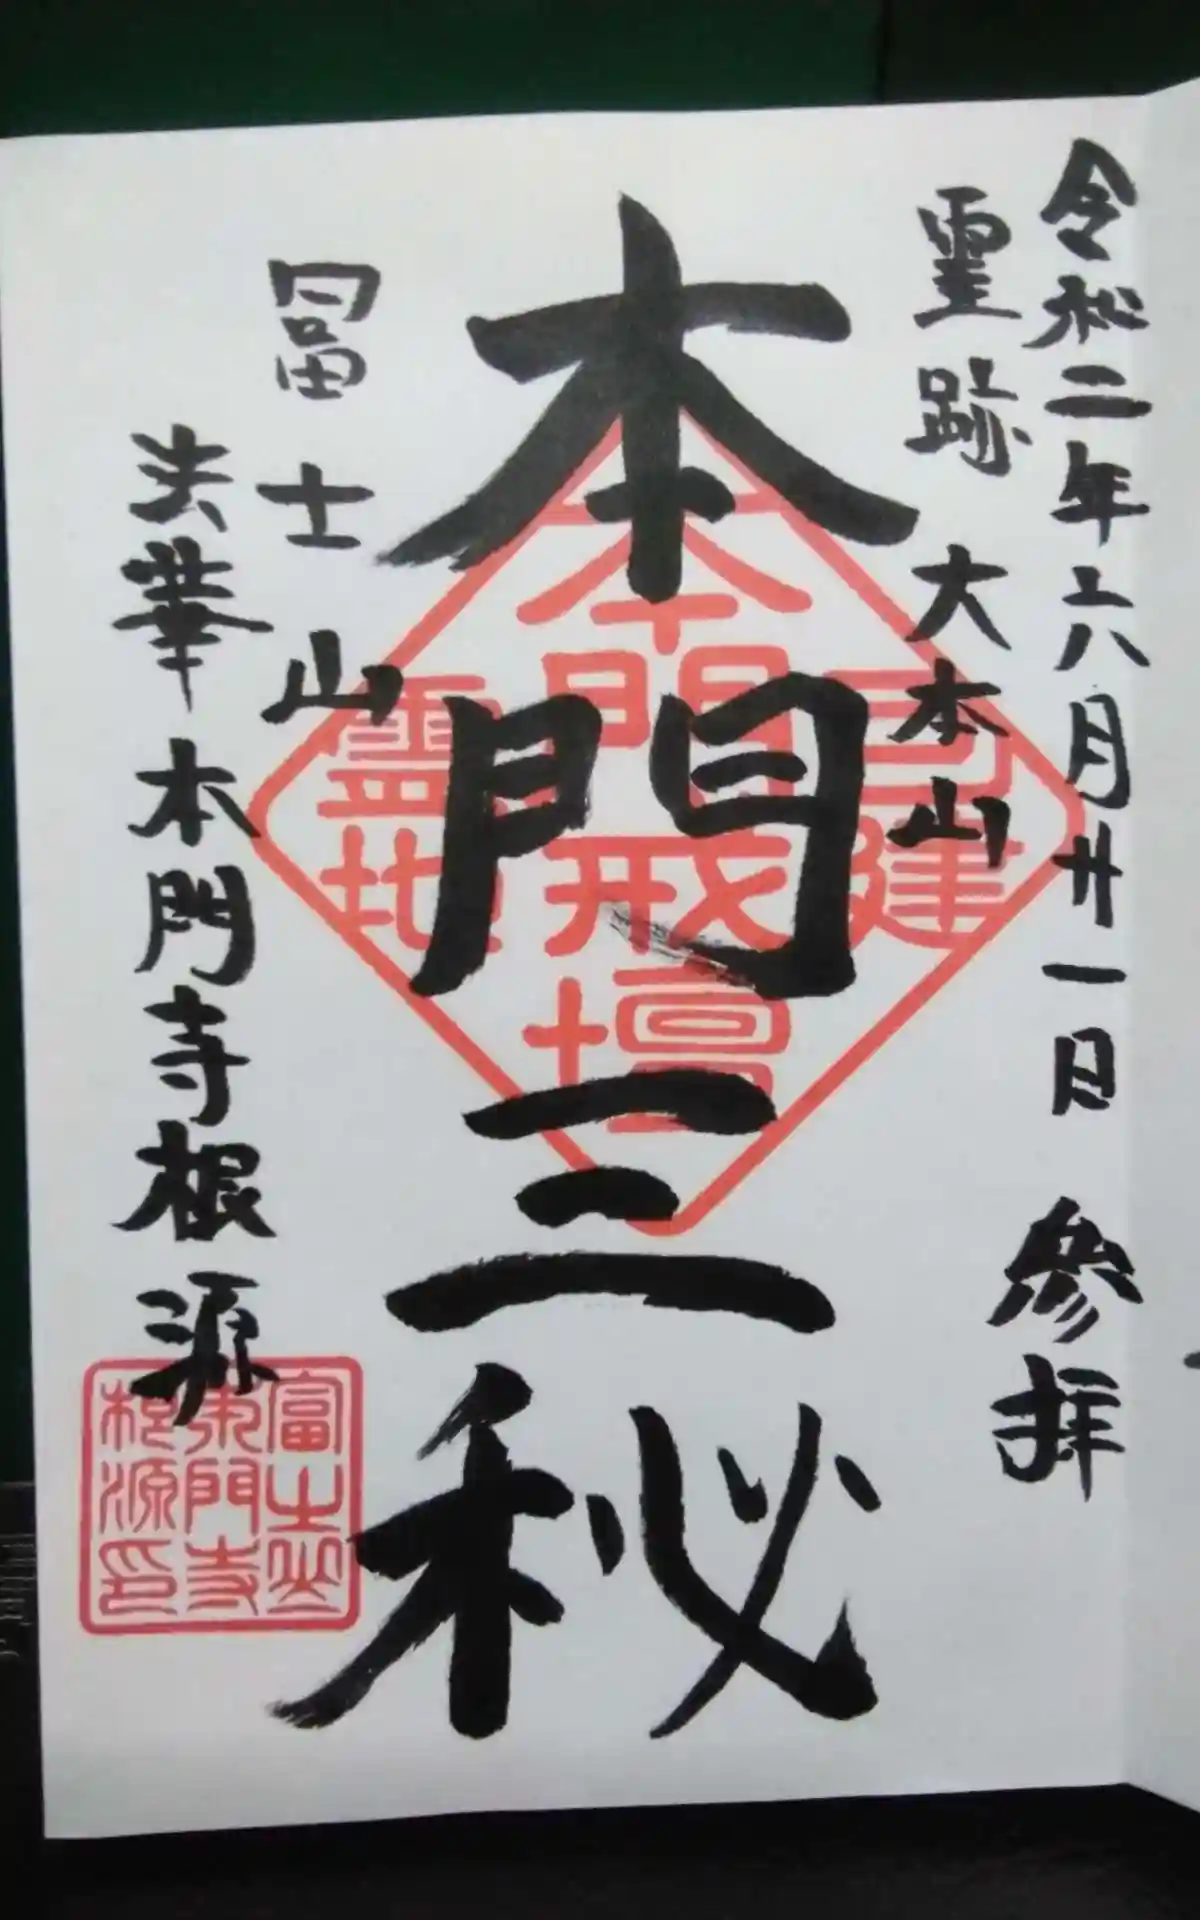 令和二年六月廿一日 參拝
霊跡 大本山
本門三秘
冨士山
法華本門寺根源
高建
本門戒壇
霊地
富士山
本門寺
根源印